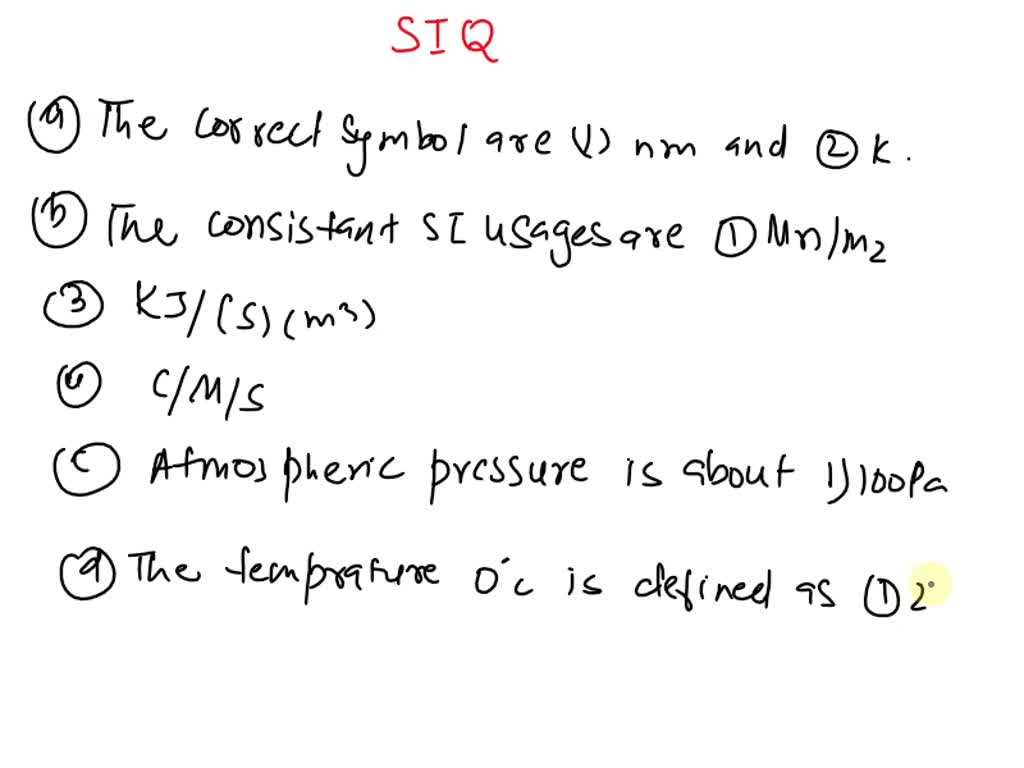 SIQ
(a) The correct symbol are (1) nm and (2) K.
(b) The consistant SI usages are (1) Mn/m2
(3) KJ/(S)(m3)
(4) C/M/S
(c) Atmospheric pressure is about 1) 100Pa
(d) The temprature 0°c is defined as (1) 2